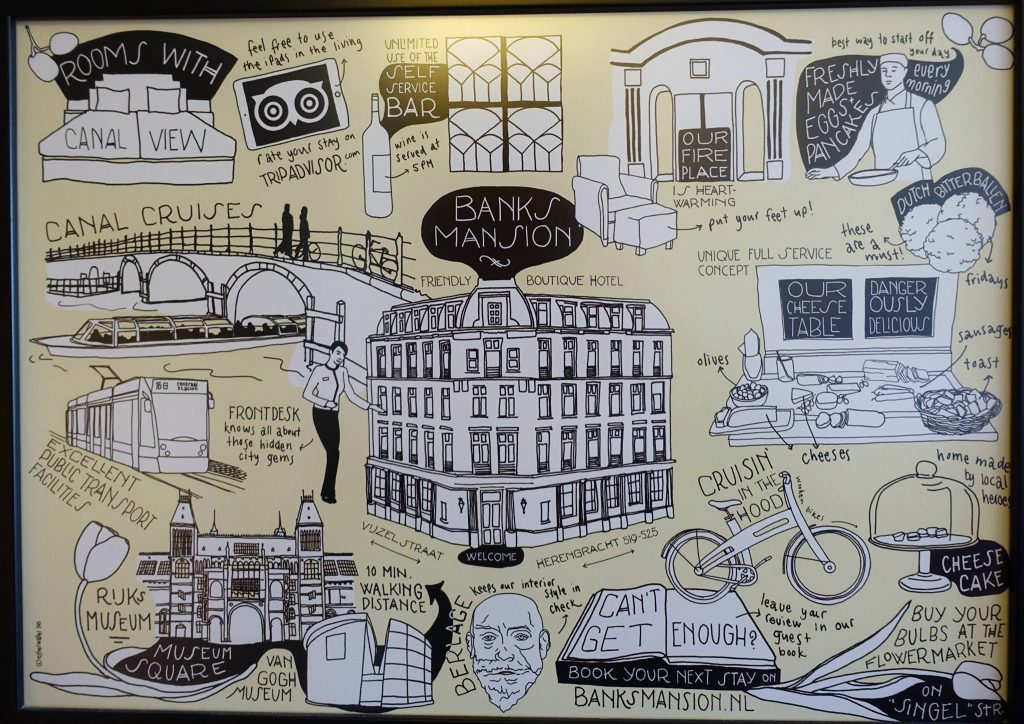 ROOMS WITH
CANAL VIEW
feel free to use
the iPads in the living
rate your stay on
TRIPADVISOR.com
UNLIMITED
USE OF THE
SELF
SERVICE
BAR
wine is
served at
5 PM
OUR
FIRE
PLACE
IS HEART-
WARMING
put your feet up!
best way to start off
your day
every
morning
FRESHLY
MADE
EGGS +
PANCAKES
DUTCH BITTERBALLEN
these
are a
must!
fridays
CANAL CRUISES
BANKS
MANSION
FRIENDLY BOUTIQUE HOTEL
UNIQUE FULL SERVICE
CONCEPT
OUR
CHEESE
TABLE
DANGER
OUSLY
DELICIOUS
olives
sausages
toast
cheeses
16B
CENTRAAL
STATION
EXCELLENT
PUBLIC TRANSPORT
FACILITIES
FRONTDESK
knows all about
those hidden
city gems
VIJZELSTRAAT
WELCOME
HERENGRACHT 519-525
CRUISIN'
IN THE
HOOD
bikes
home made
by local
heroes
CHEESE
CAKE
RIJKS
MUSEUM
MUSEUM
SQUARE
VAN
GOGH
MUSEUM
10 MIN.
WALKING
DISTANCE
BERLAGE
keeps our interior
style in
check
CAN'T
GET ENOUGH?
leave your
review in our
guest
book
BOOK YOUR NEXT STAY ON
BANKSMANSION.NL
BUY YOUR
BULBS AT THE
FLOWERMARKET
ON
"SINGEL" STR.